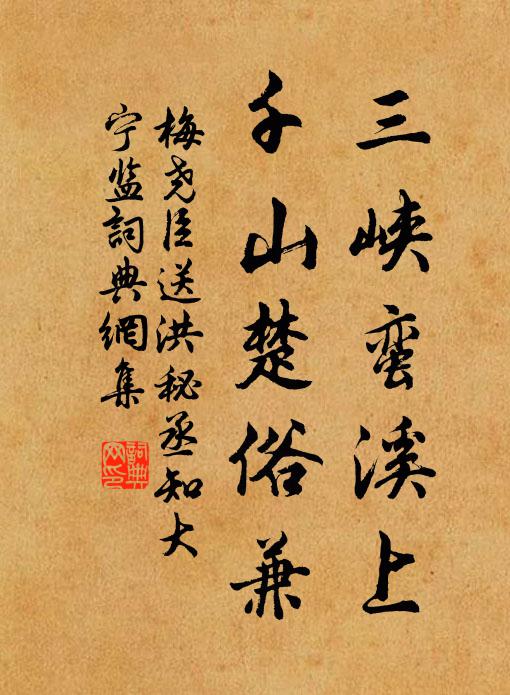 三峡蛮溪上
千山楚俗兼
梅尧臣送洪秘丞知大
宁监詞典網集
詞典网印